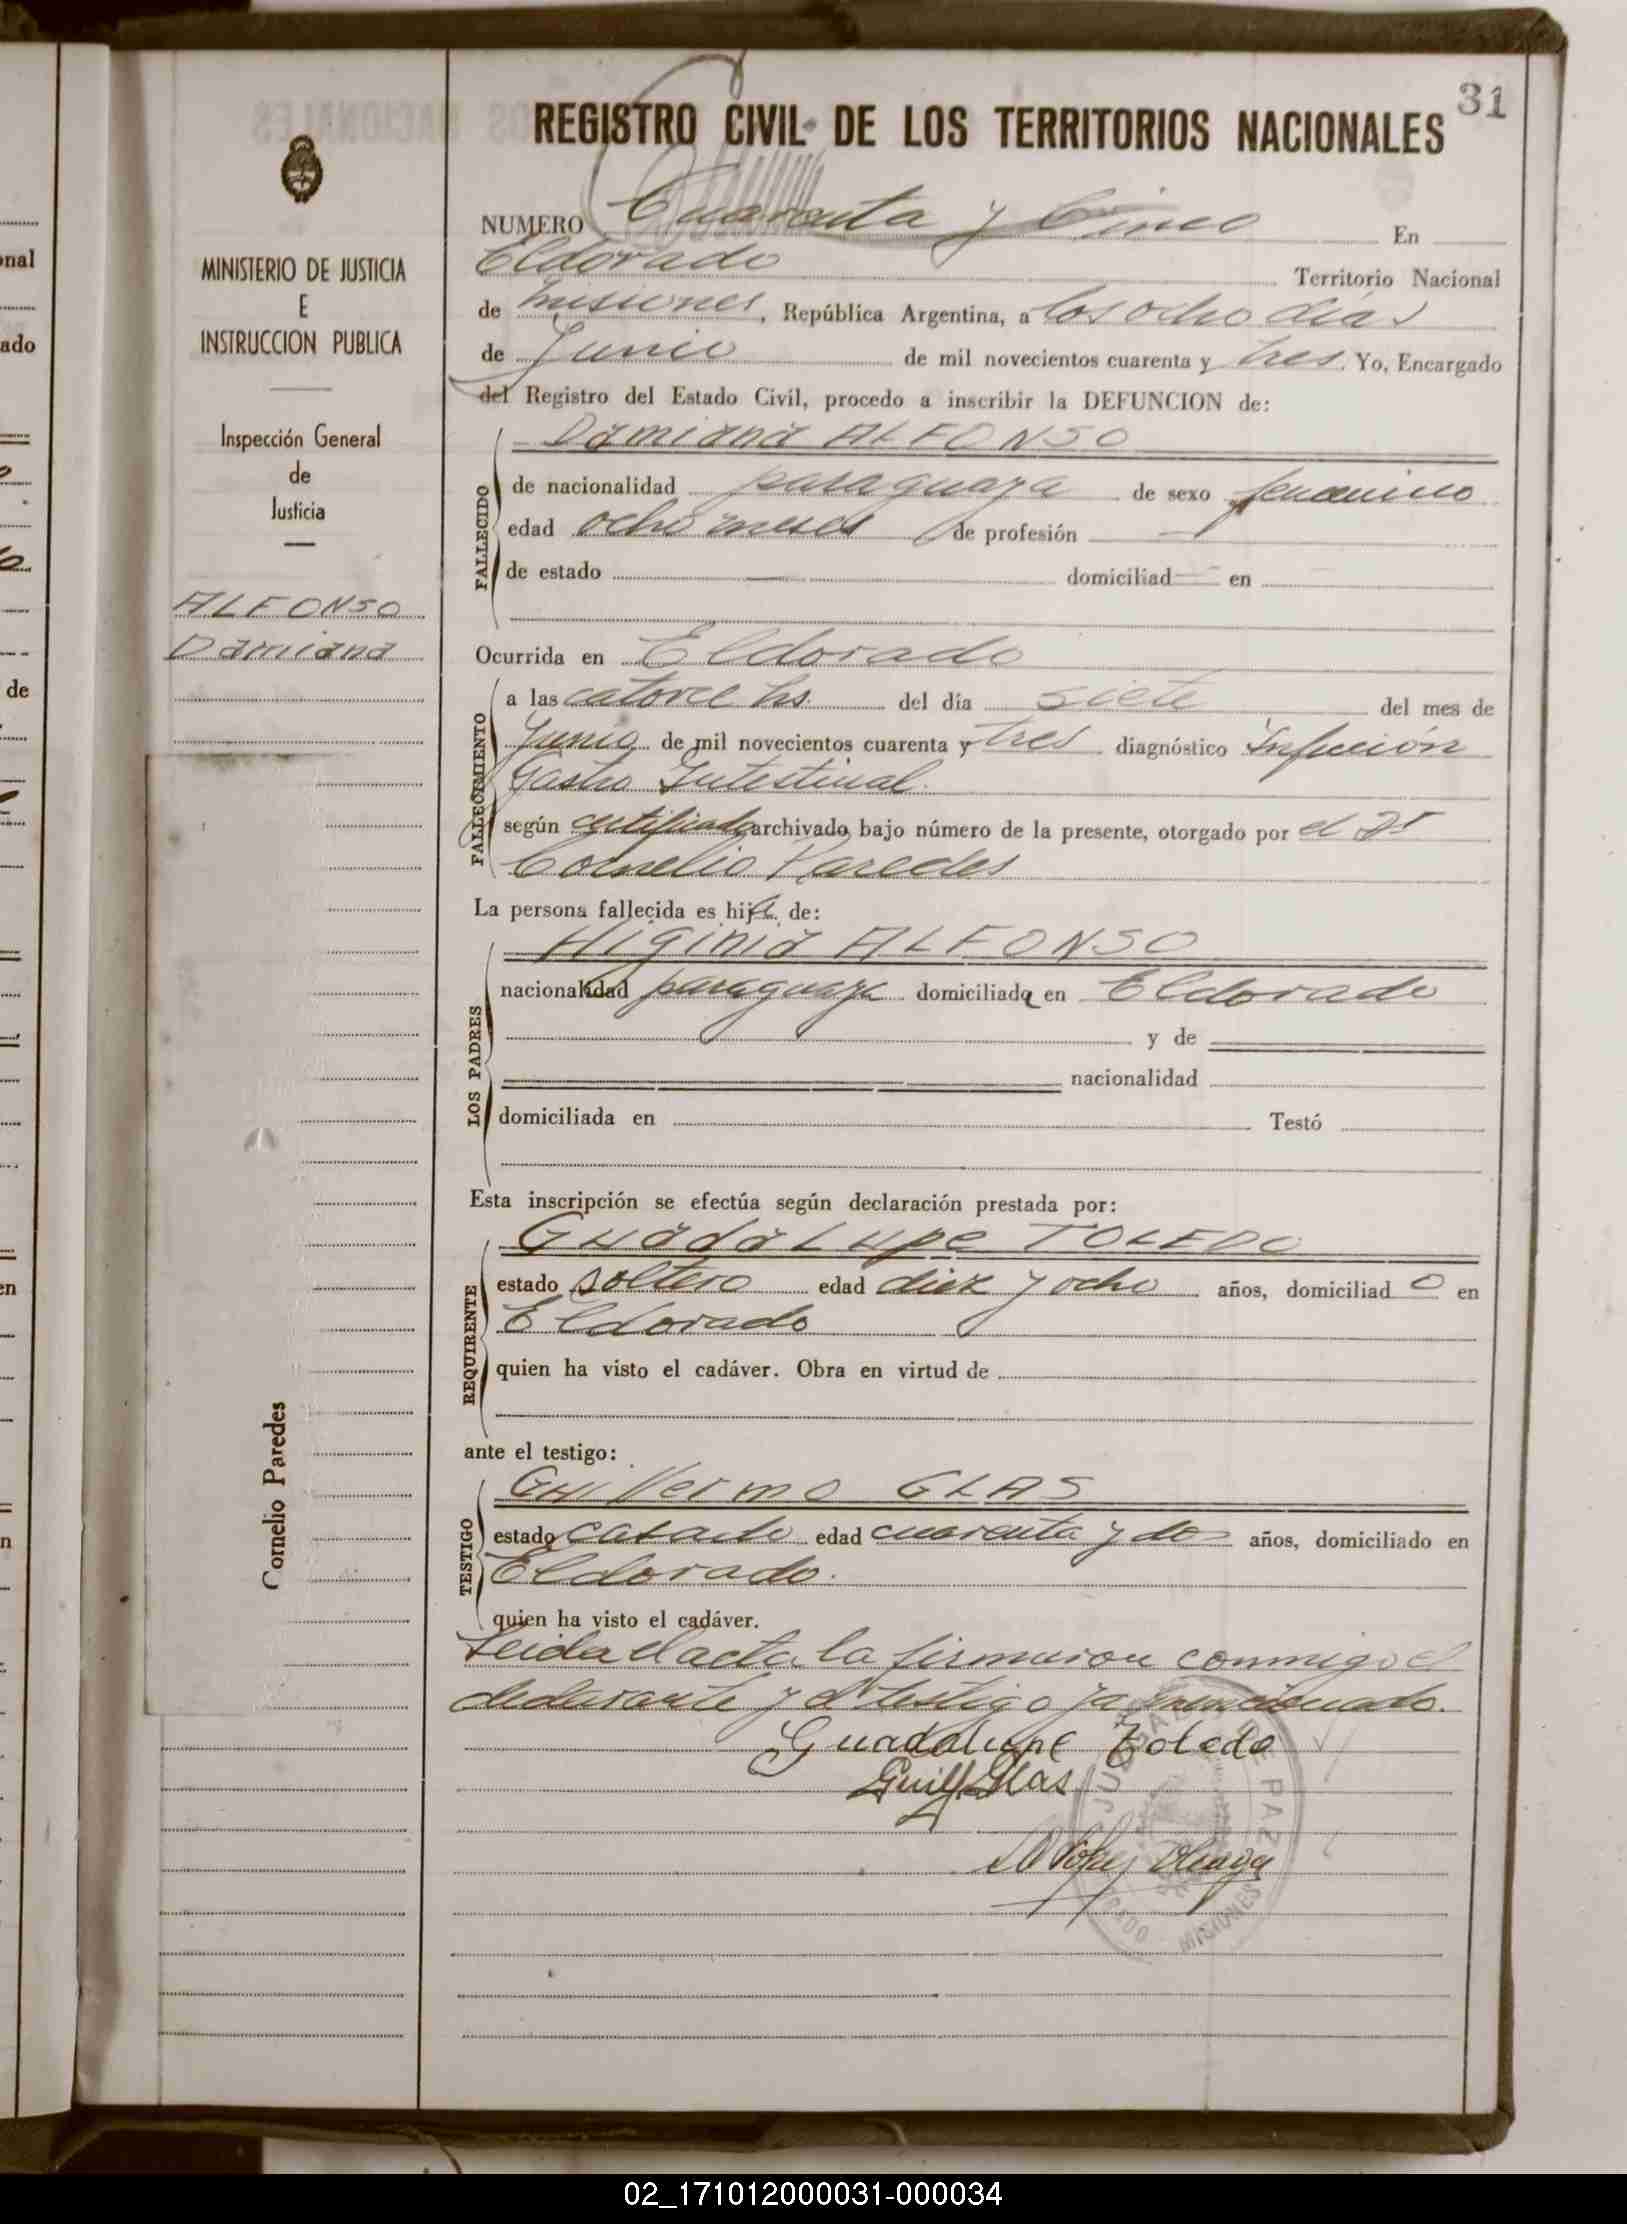 31
REGISTRO CIVIL DE LOS TERRITORIOS NACIONALES
MINISTERIO DE JUSTICIA
E
INSTRUCCION PUBLICA
Inspección General
de
Justicia
ALFONSO
Damiana
NUMERO Cuarenta y Cinco En
Eldorado Territorio Nacional
de Misiones, República Argentina, a los ocho días
de Junio de mil novecientos cuarenta y tres. Yo, Encargado
del Registro del Estado Civil, procedo a inscribir la DEFUNCION de:
Damiana ALFONSO
FALLECIDO
de nacionalidad paraguaya de sexo femenino
edad ocho meses de profesión —
de estado — domiciliad— en
Ocurrida en Eldorado
FALLECIMIENTO
a las catorce hs. del día siete del mes de
Junio de mil novecientos cuarenta y tres diagnóstico Infección
Gastro Intestinal.
según certificado archivado, bajo número de la presente, otorgado por el Dr
Cornelio Paredes
La persona fallecida es hija de:
Higinia ALFONSO
LOS PADRES
nacionalidad paraguaya domiciliada en Eldorado
y de
nacionalidad
domiciliada en Testó
Esta inscripción se efectúa según declaración prestada por:
Guadalupe TOLEDO
REQUIRENTE
estado soltero edad diez y ocho años, domiciliado en
Eldorado
quien ha visto el cadáver. Obra en virtud de
ante el testigo:
Guillermo GLAS
TESTIGO
estado casado edad cuarenta y dos años, domiciliado en
Eldorado.
quien ha visto el cadáver.
Leida el acta la firmaron conmigo el
declarante y el testigo ya mencionado.
Guadalupe Toledo
Guill. Glas
JUZGADO DE PAZ
MISIONES
Cornelio Paredes
02_171012000031-000034